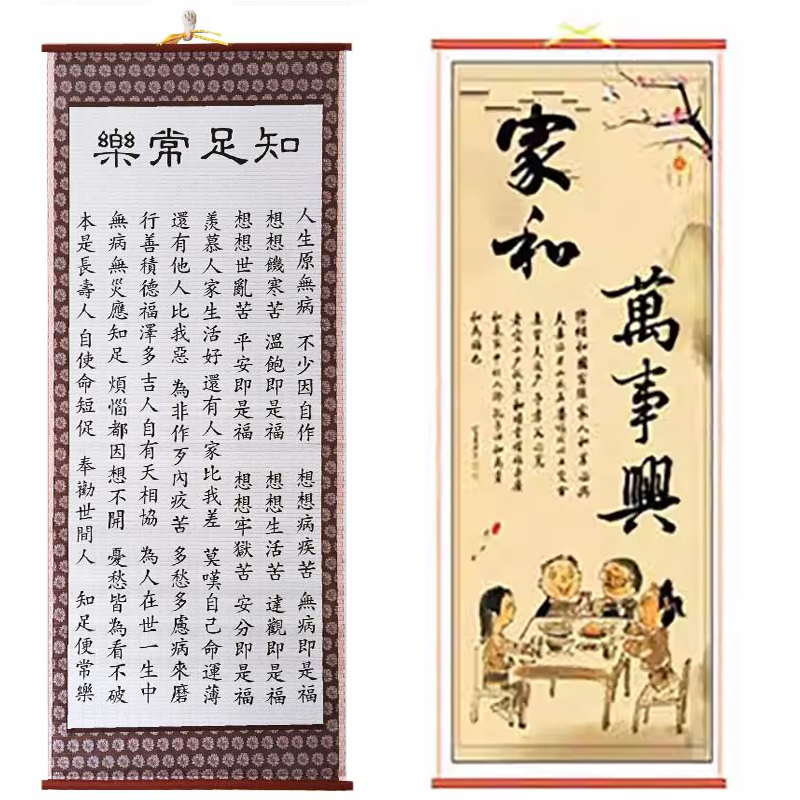 知足常樂
人生原無病 不少因自作 想想病疾苦 無病即是福
想想饑寒苦 溫飽即是福 想想生活苦 達觀即是福
想想世亂苦 平安即是福 想想牢獄苦 安分即是福
羨慕人家生活好 還有人家比我差 莫嘆自己命運薄
還有他人比我惡 為非作歹內疚苦 多愁多慮病來磨
行善積德福澤多 吉人自有天相協 為人在世一生中
無病無災應知足 煩惱都因想不開 憂愁皆為看不破
本是長壽人 自使命短促 奉勸世間人 知足便常樂
家和
萬事興